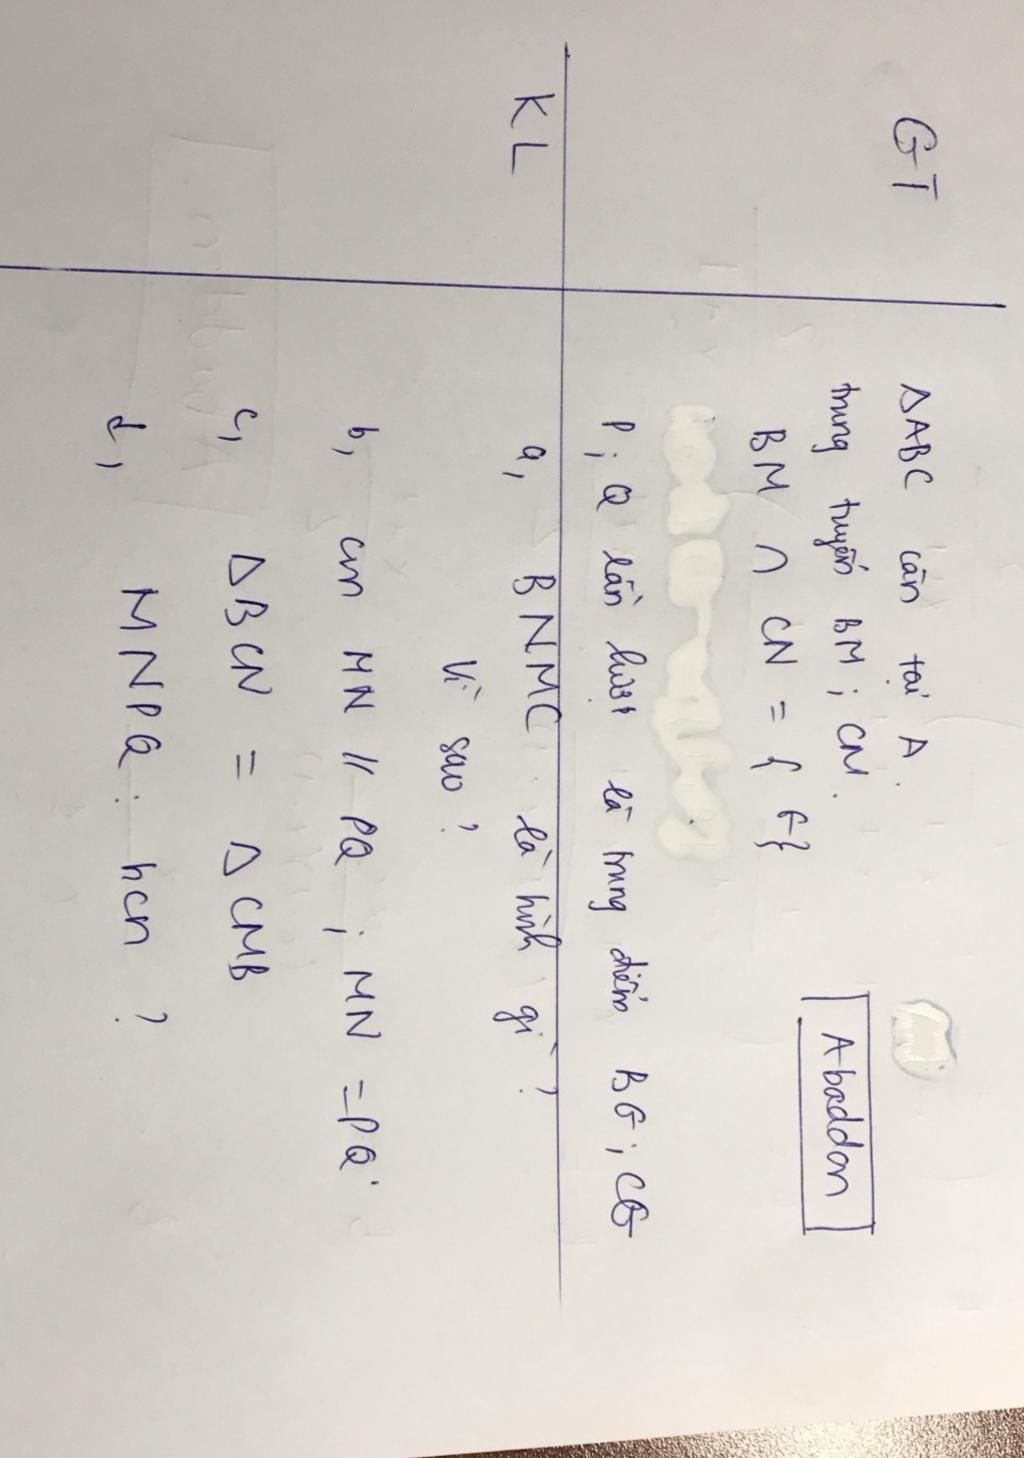 GT
ΔABC cân tại A.
trung tuyến BM; CN.
BM ∩ CN = { G}
Abaddon
P; Q lần lượt là trung điểm BG; CG
KL
a, BNMC là hình gì?
Vì sao?
b, cm MN // PQ; MN = PQ.
c, ΔBCN = ΔCMB
d, MNPQ: hcn?